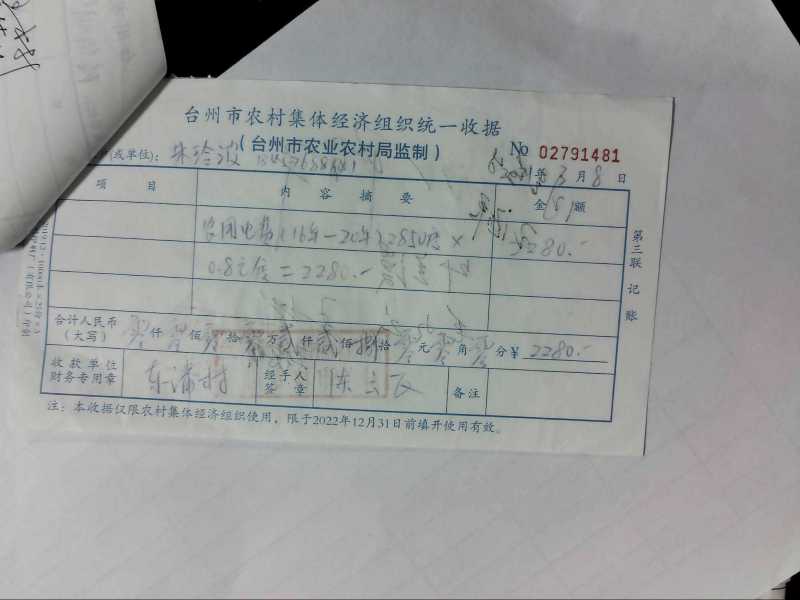 台州市农村集体经济组织统一收据
(台州市农业农村局监制)
No 02791481
(或单位): 朱玲波
年 3 月 8 日
项 目 内 容 摘 要 金 额
电费(16年—20年)2850度 × 2280.-
0.8元 = 2280.-
第三联 记账
合计人民币 (大写) 零仟零佰零拾零万贰仟贰佰捌拾零元零角零分¥ 2280.-
收款单位 财务专用章 东浦村 经手人 签章 备注
注:本收据仅限农村集体经济组织使用,限于2022年12月31日前填开使用有效。